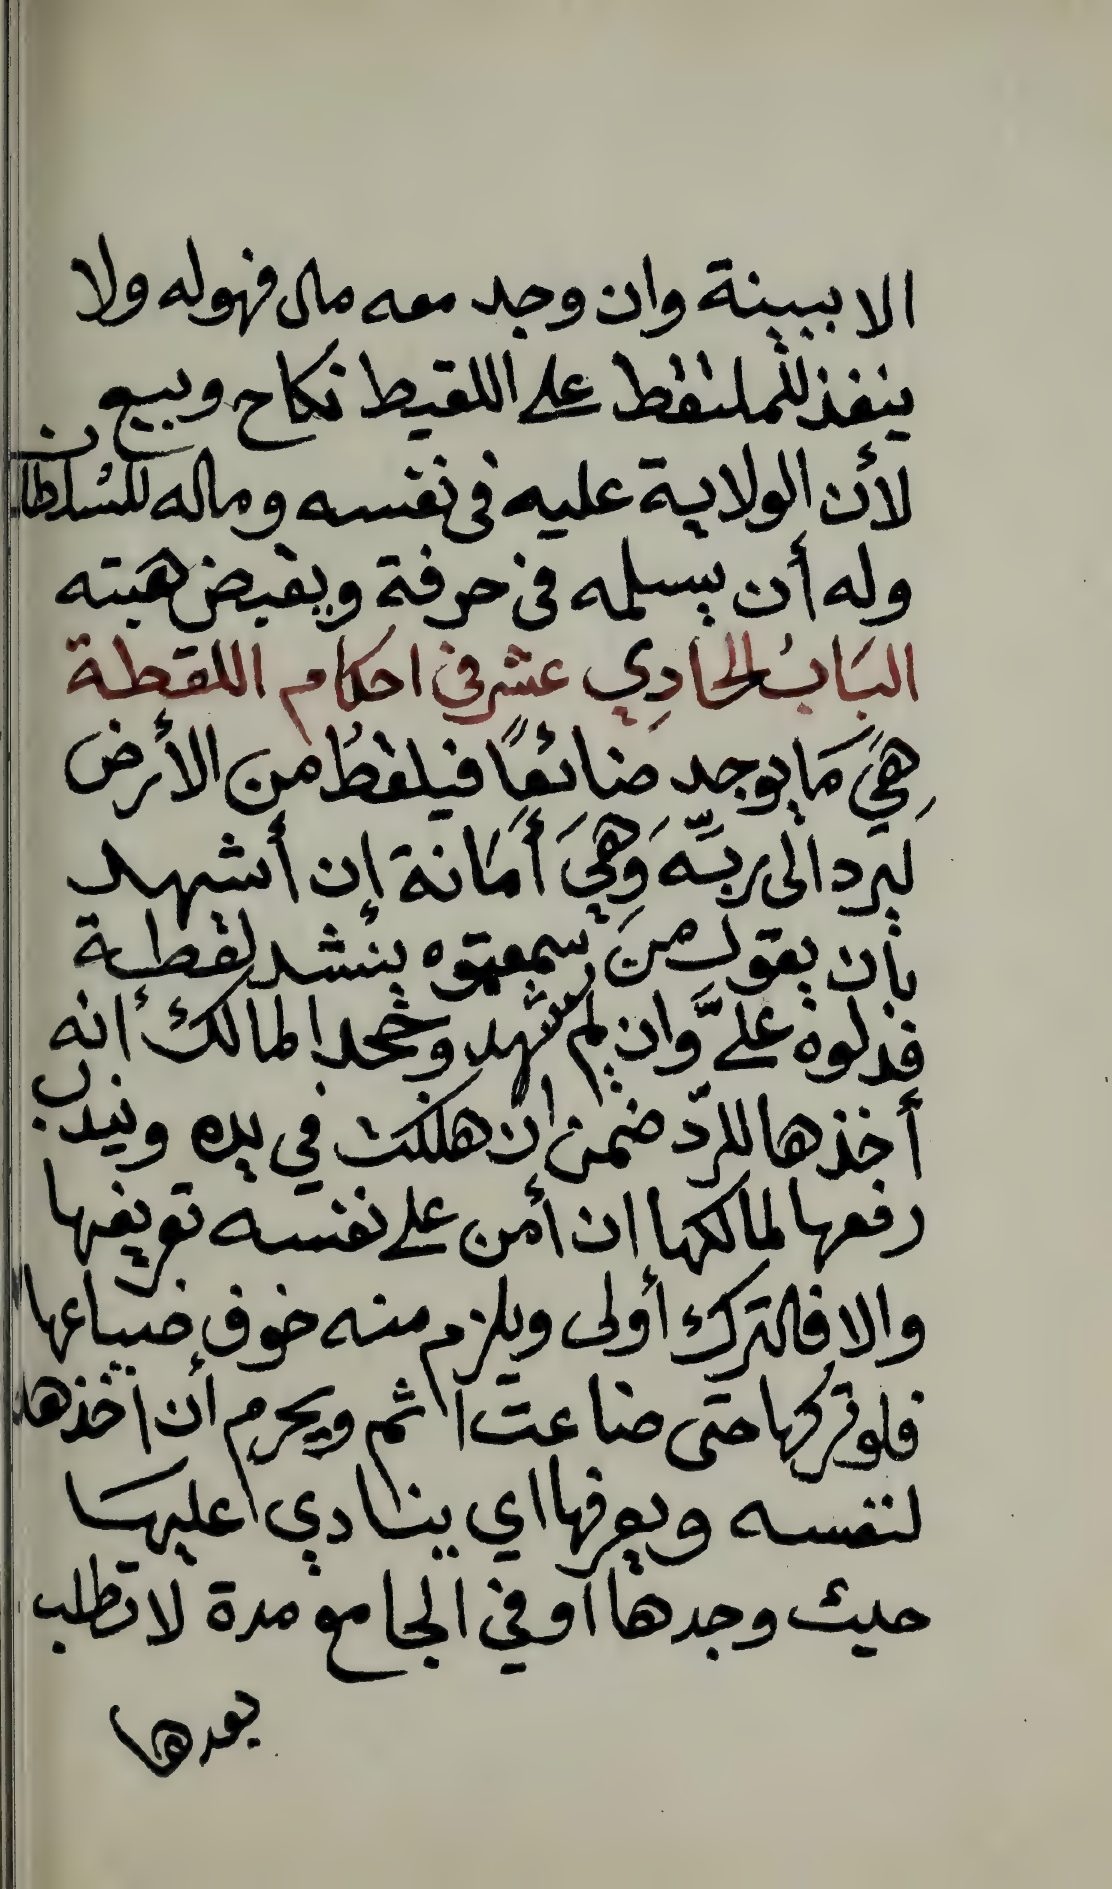 الا ببينة وان وجد معه مال فهو له ولا
ينفذ للملتقط على اللقيط نكاح وبيع
لأن الولاية عليه فى نفسه وماله للسُلطان
وله أن يسلمه فى حرفة ويقبض هبته
البَابُ الحَادِي عشر في احكام اللقطة
هِيَ مَا يوجد ضائعًا فيلقطُ من الأرض
ليرد الى ربّه وَهِيَ أَمَانة إن أشهد
بأن يقول من سمعتموه ينشد لقطة
فدلوه علىَّ وان لم يشهد وجحد المالك أنه
أخذها للردّ ضمن ان هلكت في يده ويندب
رفعها لمالكها ان أمن على نفسه تعريفها
والا فالترك أولى ويلزم منه خوف ضياعها
فلو تركها حتى ضاعت اثم ويحرم أن أخذها
لنفسه ويعرفها اي ينادي عليها
حيث وجدها أو في الجامع مدة لا تطلب
بعدها